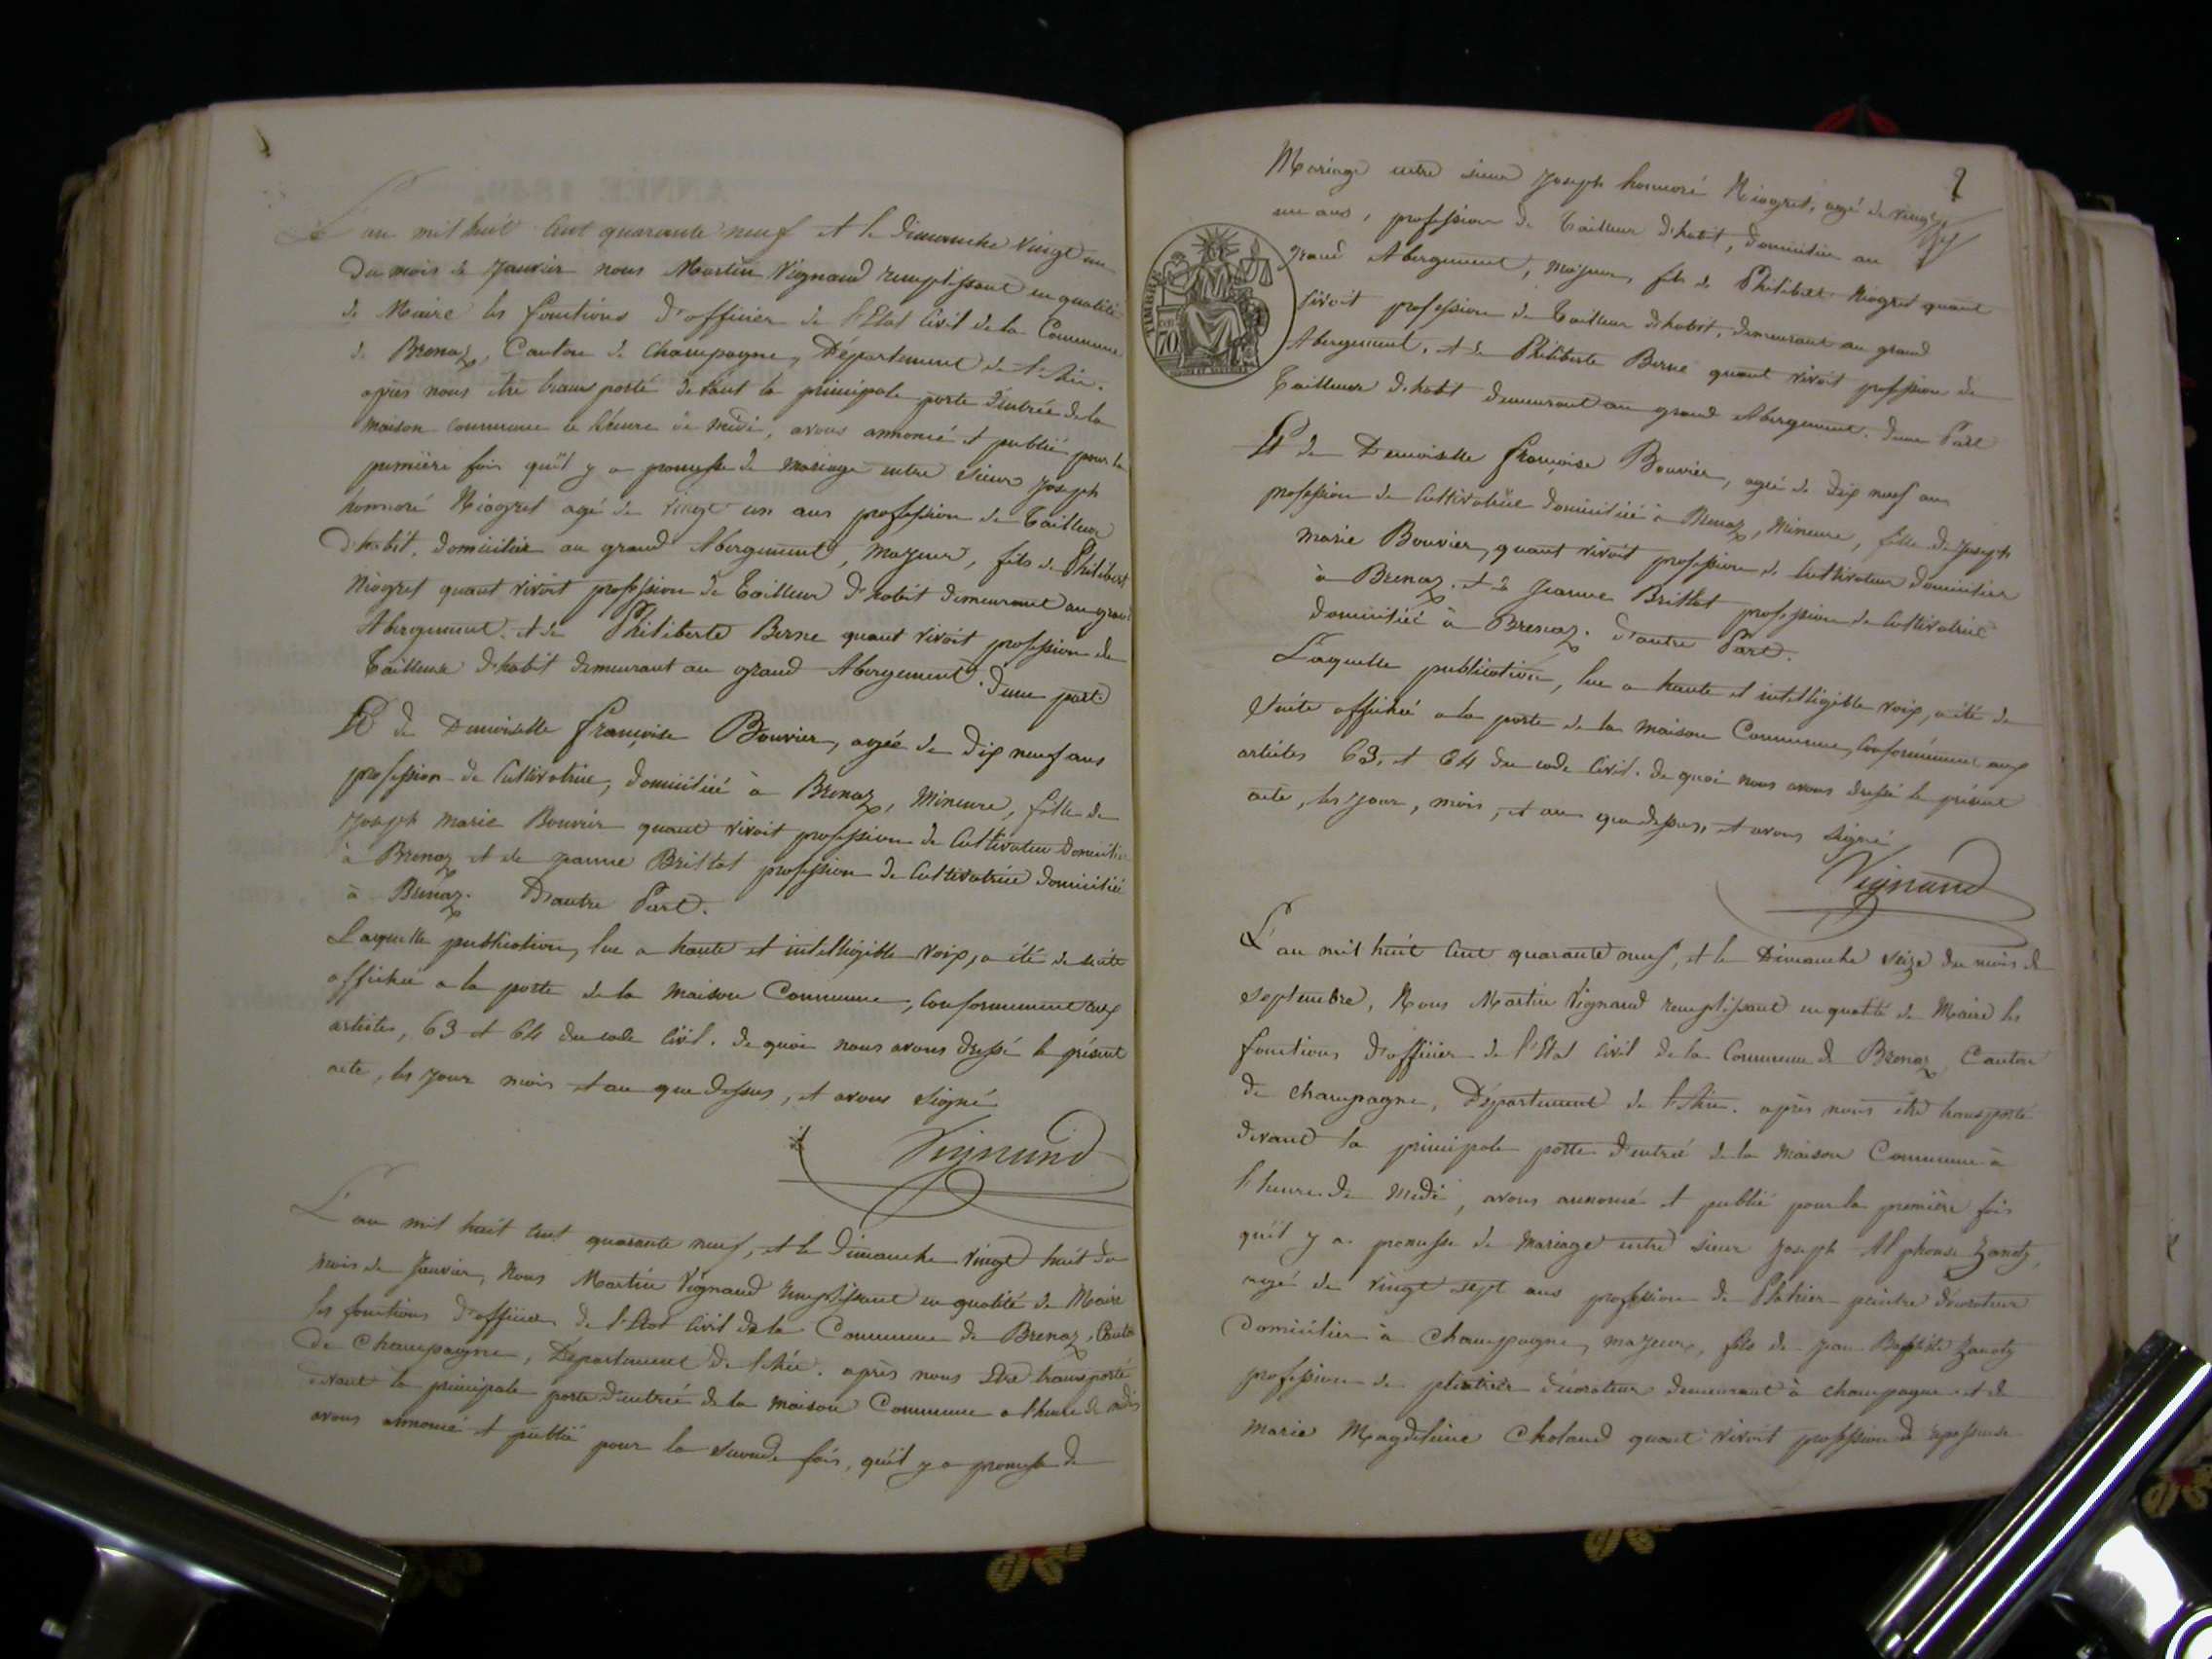 L'an mil huit cent quarante neuf et le dimanche vingt un
du mois de Janvier nous Martin Vignand remplissant en qualité
de Maire les fonctions d'officier de l'Etat Civil de la Commune
de Brenaz, Canton de Champagne, Département de l'Ain.
après nous être transporté devant la principale porte d'entrée de la
maison commune à l'heure de midi, avons annoncé et publié pour la
première fois qu'il y a promesse de mariage entre sieur Joseph
honnoré Niogret agé de vingt un ans profession de Tailleur
d'habit, domicilier au grand Abergement, mazeur, fils de Philibert
Niogret quant vivoit profession de Tailleur d'habit demeurant au grand
Abergement. et de Philiberte Berne quant vivoit profession de
Tailleuse d'habit demeurant au grand Abergement. d'une part
Et de Demoiselle françoise Bouvier, agée de dix neuf ans
profession de Cultivatrice, domiciliée à Brenaz, Mineure, fille de
Joseph marie Bouvier quant vivoit profession de Cultivateur domicilier
à Brenaz et de Jeanne Brillat profession de Cultivatrice domiciliée
à Brenaz. D'autre Part.
Laquelle publication, lue a haute et intelligible voix, a été de suite
affichée a la porte de la maison Commune, Conformément aux
articles, 63 et 64 du code Civil. de quoi nous avons dressé le présent
acte, les jour mois et an que dessus, et avons signé
Vignand
L'an mil huit cent quarante neuf, et le dimanche vingt huit du
mois de Janvier, Nous Martin Vignand remplissant en qualité de Maire
les fonctions d'officier de l'Etat Civil de la Commune de Brenaz, Canton
de Champagne, Département de l'Ain. après nous être transporté
devant la principale porte d'entrée de la maison Commune a l'heure de midi
avons annoncé et publié pour la seconde fois, qu'il y a promesse de
2
Mariage entre sieur Joseph honnoré Niogret, agé de vingt
un ans, profession de Tailleur d'habit, domicilier au
grand Abergement, majeur, fils de Philibert Niogret quant
vivoit profession de Tailleur d'habit, demeurant au grand
Abergement. et de Philiberte Berne quant vivoit profession de
Tailleuse d'habit demeurant au grand Abergement. d'une Part
TIMBRE
70
Et de Demoiselle françoise Bouvier, agée de dix neuf ans
profession de Cultivatrice domiciliée à Brenaz, Mineure, fille de Joseph
marie Bouvier, quant vivoit profession de Cultivateur domicilier
à Brenaz. et de Jeanne Brillat profession de Cultivatrice
domiciliée à Brenaz. d'autre Part.
Laquelle publication, lue a haute et intelligible voix, a été de
suite affichée a la porte de la maison Commune, Conformément aux
articles 63, et 64 du code Civil. de quoi nous avons dressé le présent
acte, les jour, mois, et an que dessus, et avons signé
Vignand
L'an mil huit cent quarante neuf, et le Dimanche seize du mois de
septembre, Nous Martin Vignand remplissant en qualité de Maire les
fonctions d'officier de l'Etat Civil de la Commune de Brenaz, Canton
de champagne, Département de l'Ain. après nous être transporté
devant la principale porte d'entrée de la maison Commune à
l'heure de midi, avons annoncé et publié pour la première fois
qu'il y a promesse de mariage entre sieur Joseph Alphonse Zanoty,
agé de vingt sept ans profession de Plâtrier peintre décorateur
Domicilier à Champagne, mazeur, fils de Jean Baptiste Zanoty
profession de plâtrier décorateur demeurant à champagne et de
Marie Magdeleine Choland quant vivoit profession de repasseuse